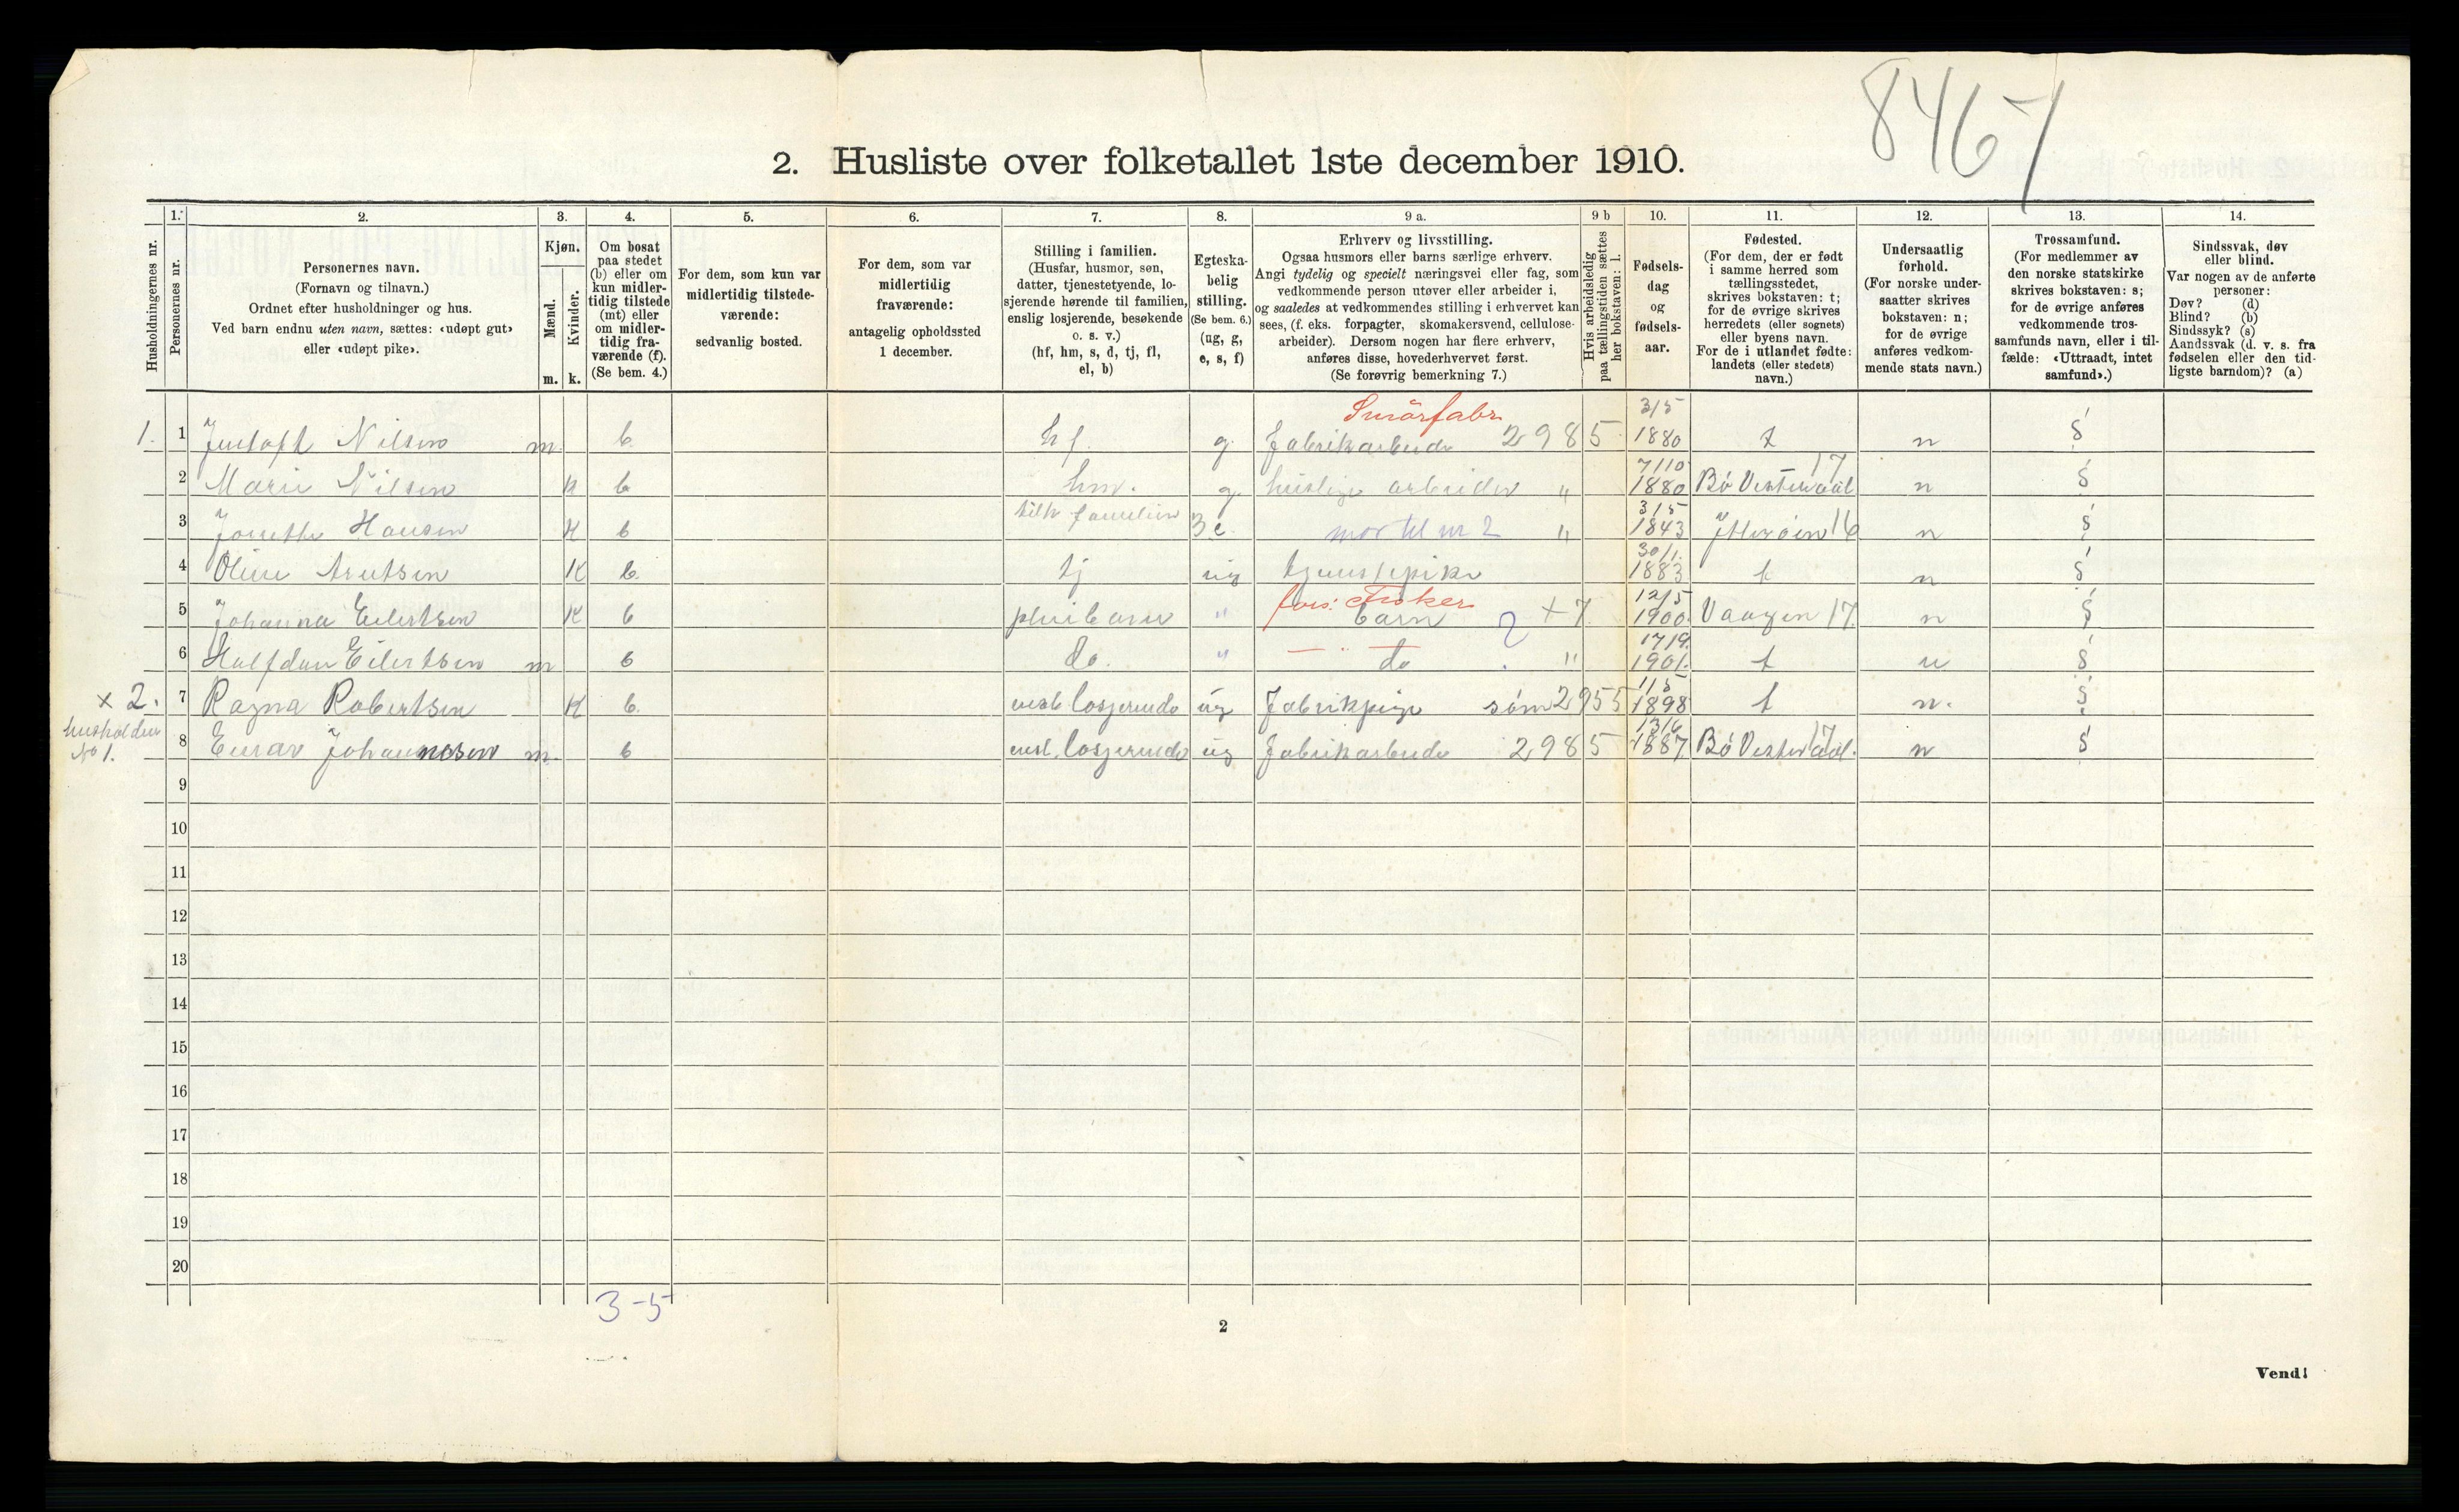 8467
2. Husliste over folketallet 1ste december 1910.
1. 2. 3. 4. 5. 6. 7. 8. 9 a. 9 b 10. 11. 12. 13. 14.
Husholdningernes nr.
Personernes nr.
Personernes navn.
(Fornavn og tilnavn.)
Ordnet efter husholdninger og hus.
Ved barn endnu uten navn, sættes: «udøpt gut»
eller «udøpt pike».
Kjøn.
Mænd.
Kvinder.
m. k.
Om bosat
paa stedet
(b) eller om
kun midler-
tidig tilstede
(mt) eller
om midler-
tidig fra-
værende (f).
(Se bem. 4.)
For dem, som kun var
midlertidig tilstede-
værende:
sedvanlig bosted.
For dem, som var
midlertidig
fraværende:
antagelig opholdssted
1 december.
Stilling i familien.
(Husfar, husmor, søn,
datter, tjenestetyende, lo-
sjerende hørende til familien,
enslig losjerende, besøkende
o. s. v.)
(hf, hm, s, d, tj, fl,
el, b)
Egteska-
belig
stilling.
(Se bem. 6.)
(ug, g,
e, s, f)
Erhverv og livsstilling.
Ogsaa husmors eller barns særlige erhverv.
Angi tydelig og specielt næringsvei eller fag, som
vedkommende person utøver eller arbeider i,
og saaledes at vedkommendes stilling i erhvervet kan
sees, (f. eks. forpagter, skomakersvend, cellulose-
arbeider). Dersom nogen har flere erhverv,
anføres disse, hovederhvervet først.
(Se forøvrig bemerkning 7.)
Hvis arbeidsledig
paa tællingstiden sættes
her bokstaven: l.
Fødsels-
dag
og
fødsels-
aar.
Fødested.
(For dem, der er født
i samme herred som
tællingsstedet,
skrives bokstaven: t;
for de øvrige skrives
herredets (eller sognets)
eller byens navn.
For de i utlandet fødte:
landets (eller stedets)
navn.)
Undersaatlig
forhold.
(For norske under-
saatter skrives
bokstaven: n;
for de øvrige
anføres vedkom-
mende stats navn.)
Trossamfund.
(For medlemmer av
den norske statskirke
skrives bokstaven: s;
for de øvrige anføres
vedkommende tros-
samfunds navn, eller i til-
fælde: «Uttraadt, intet
samfund».)
Sindssvak, døv
eller blind.
Var nogen av de anførte
personer:
Døv? (d)
Blind? (b)
Sindssyk? (s)
Aandssvak (d. v. s. fra
fødselen eller den tid-
ligste barndom)? (a)
1. 1 Nilsen m. b. hf. g. Fabrikarbeide 2985 3/5 1880 t n S
2 Marie Nilsen k b hm. g. huslige arbeider " 7/10 1880 Bö Vesteraal 17 n S
3 Hansen K b familien 3 e. mor til nr 2 " 3/5 1843 16 n S
4 Oline K b. tj ug tjenestepike 30/1. 1883 t n S
fors: Fisker
5 Johanna Eilertsen K b pleibarn " barn ? + 7. 12/5 1900 Vaagen 17. n S
6 Halfdan Eilertsen m b do. " — " — do " 17/9. 1901. t n S
× 2. 7 Ragna Robertsen K b. losjerende ug Fabrikpige söm 2955 11/5 1898 t n. S
husholdn
No 1. 8 Einar Johannesen m. b losjerende ug Fabrikarbeide 2985 13/6 1887. Bö Vesteraal. 17 n S
9
10
11
12
13
14
15
16
17
18
19
20
3-5
2
Vend!